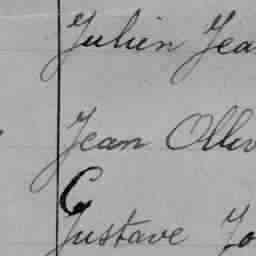 Julien Jea
Jean Olliv
G
Gustave Jo